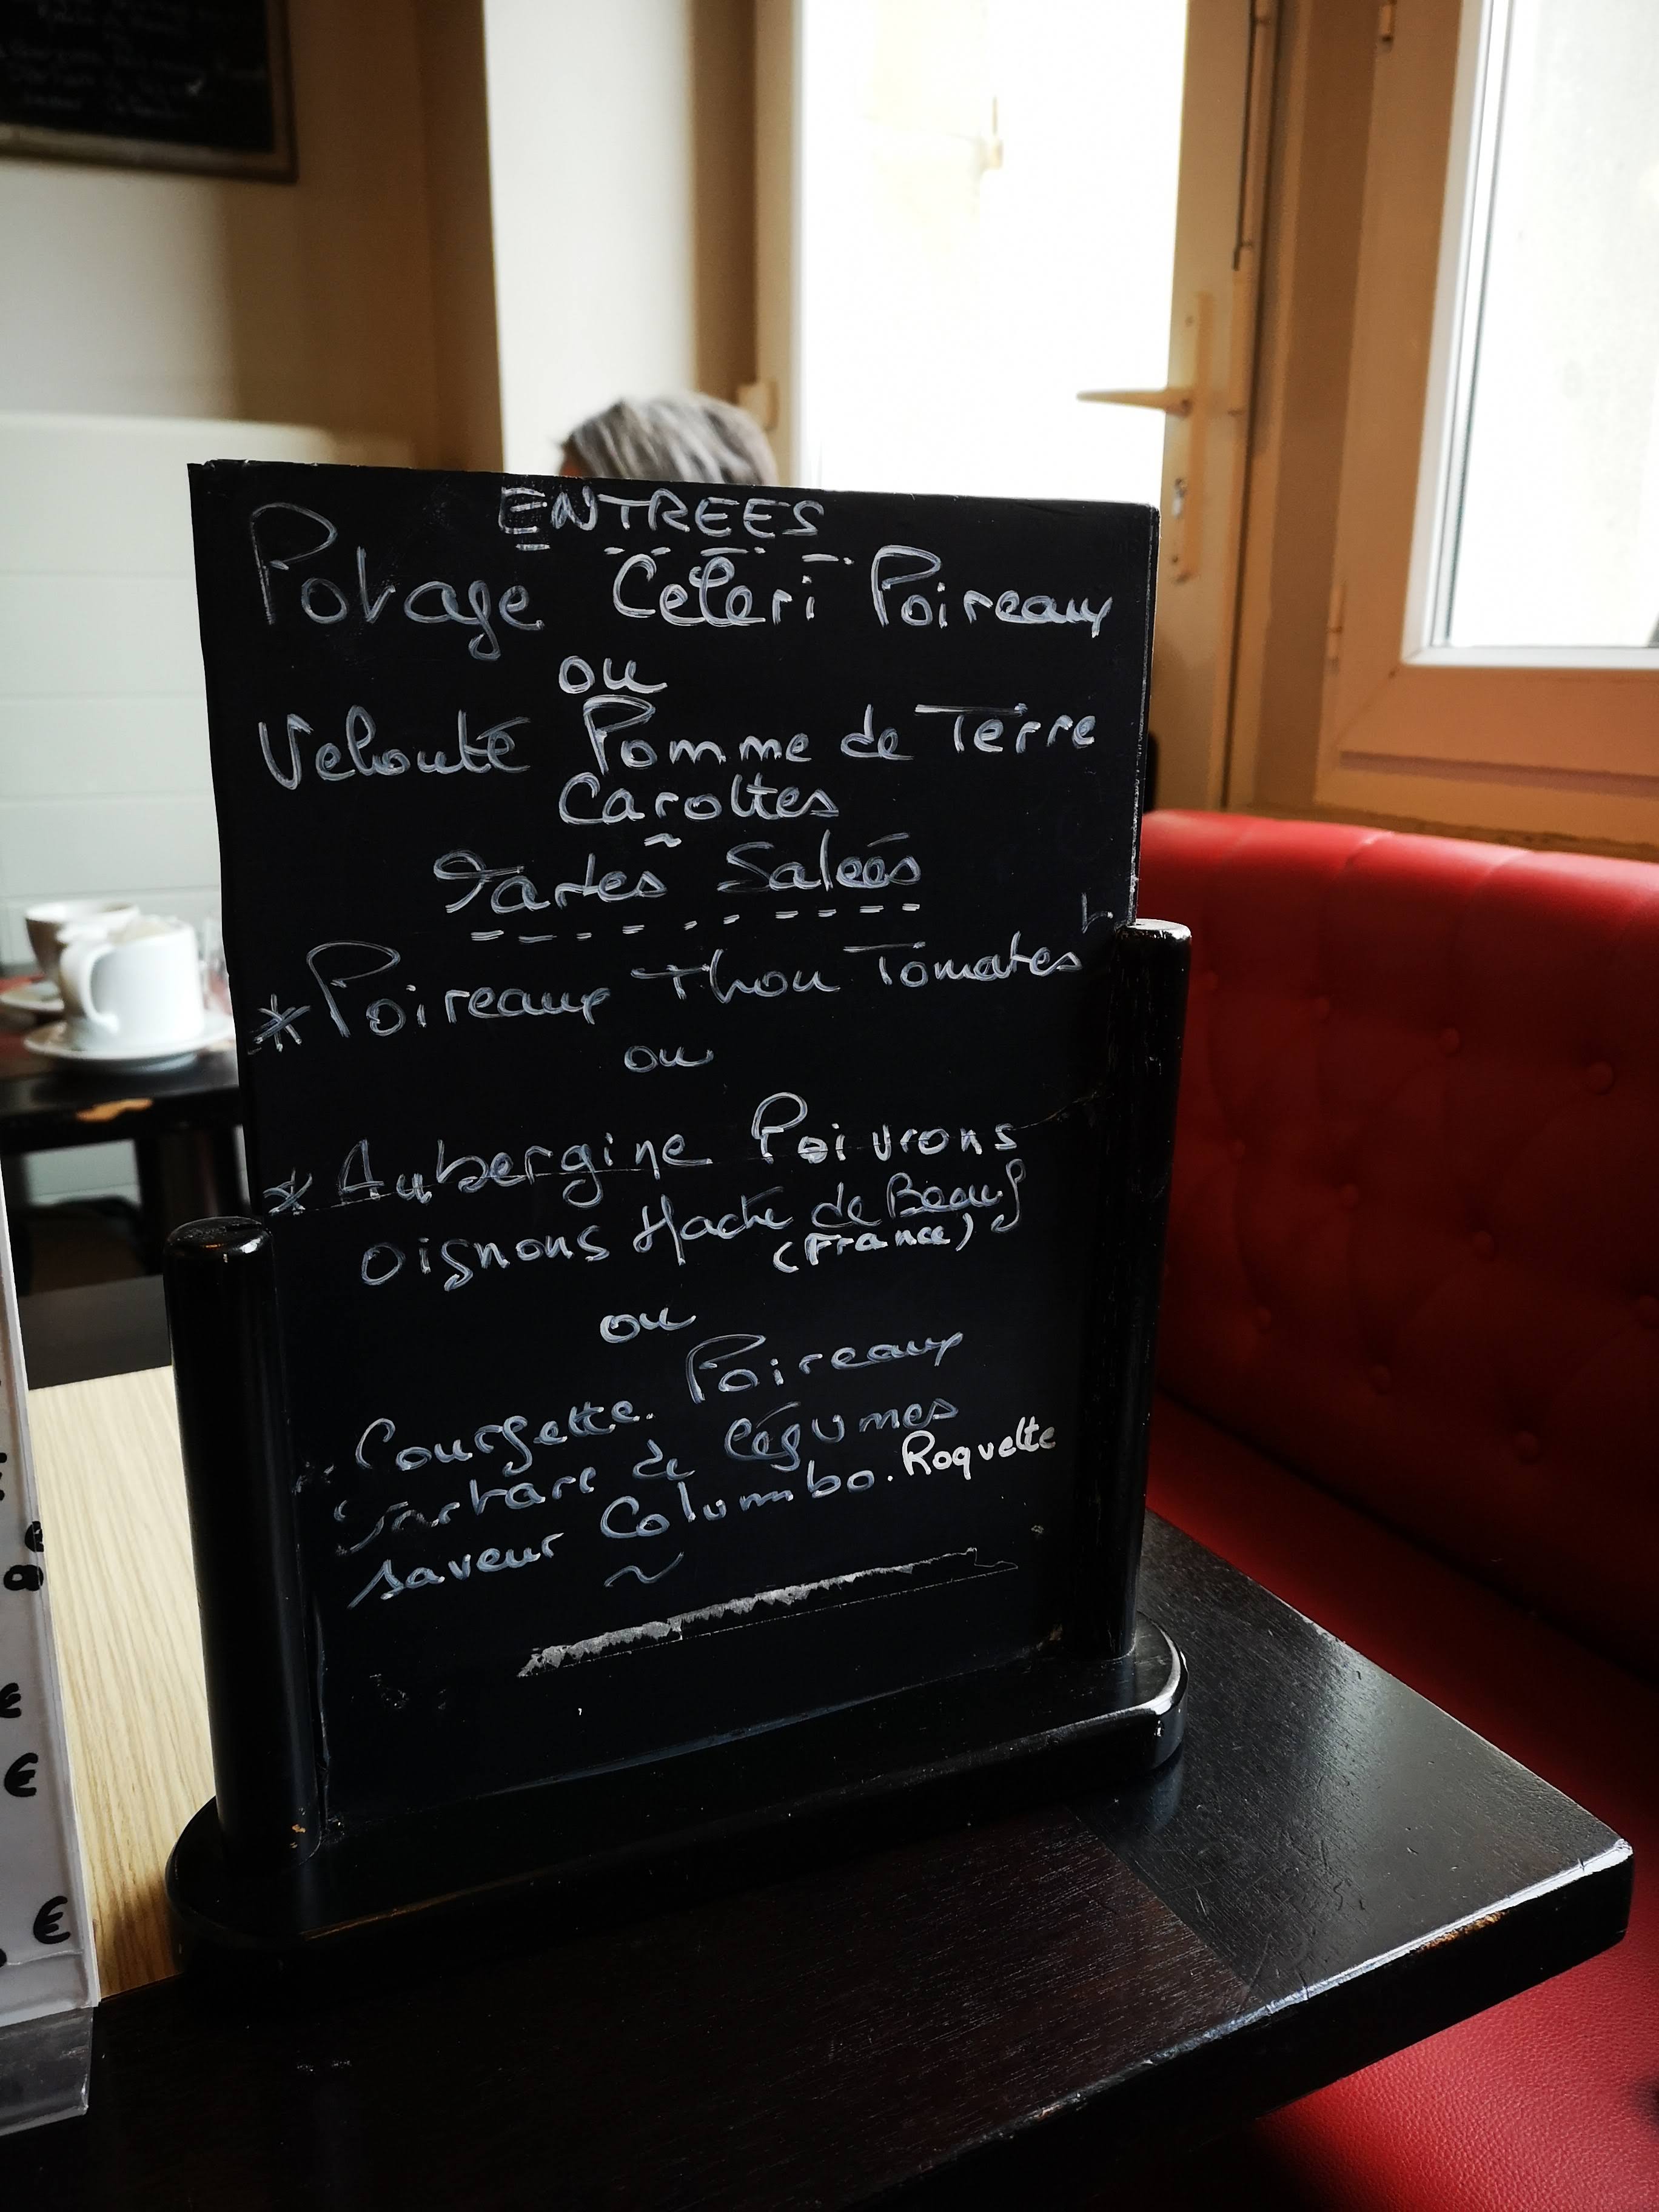 ENTREES
Potage Céleri Poireaux
ou
Velouté Pomme de Terre
Carottes
~
Tartes Salées
* Poireaux Thon Tomates
ou
* Aubergine Poivrons
Oignons Haché de Bœuf
(France)
ou
Courgette. Poireaux
Tartare de légumes
saveur Columbo. Roquette
~
€
€
€